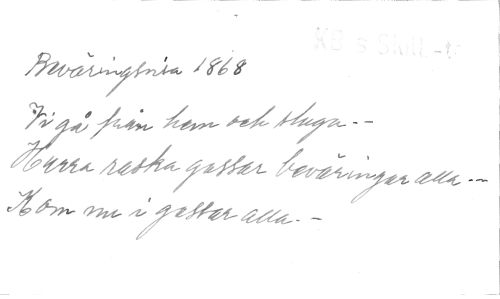 KB s Skill-
Beväringsvisa 1868
Vi gå från hem och stuga --
Hurra raska gossar beväringar alla --
Kom nu i gossar alla --